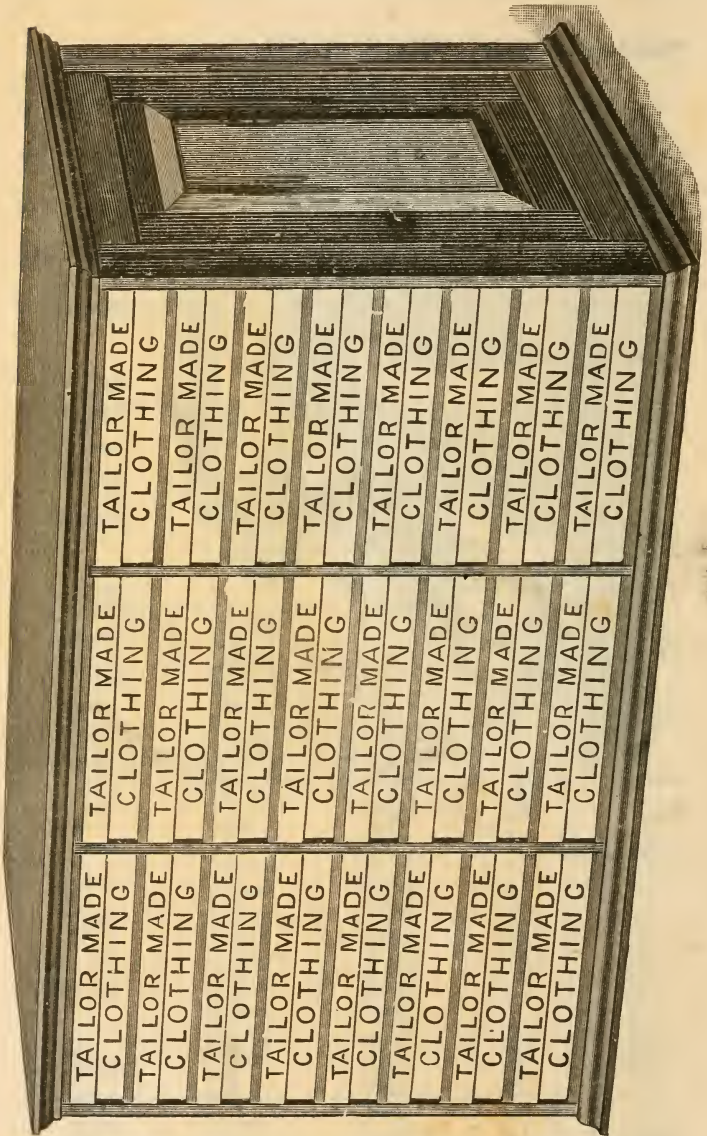 TAILOR MADE
CLOTHING
TAILOR MADE
CLOTHING
TAILOR MADE
CLOTHING
TAILOR MADE
CLOTHING
TAILOR MADE
CLOTHING
TAILOR MADE
CLOTHING
TAILOR MADE
CLOTHING
TAILOR MADE
CLOTHING
TAILOR MADE
CLOTHING
TAILOR MADE
CLOTHING
TAILOR MADE
CLOTHING
TAILOR MADE
CLOTHING
TAILOR MADE
CLOTHING
TAILOR MADE
CLOTHING
TAILOR MADE
CLOTHING
TAILOR MADE
CLOTHING
TAILOR MADE
CLOTHING
TAILOR MADE
CLOTHING
TAILOR MADE
CLOTHING
TAILOR MADE
CLOTHING
TAILOR MADE
CLOTHING
TAILOR MADE
CLOTHING
TAILOR MADE
CLOTHING
TAILOR MADE
CLOTHING